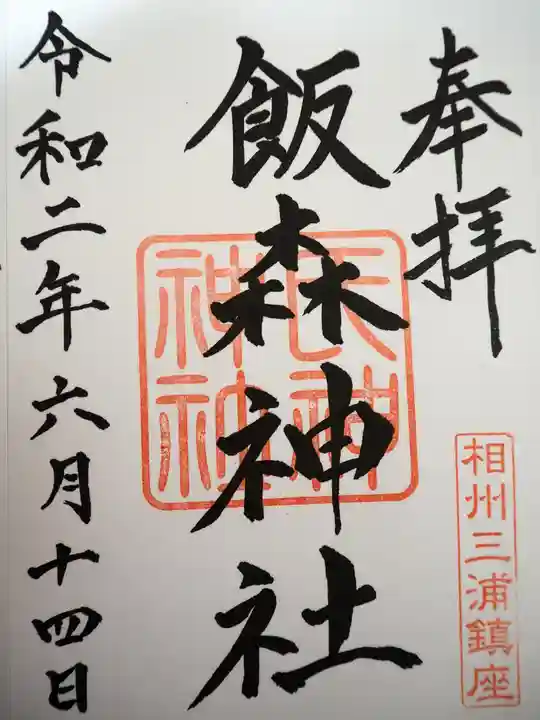 奉拝
相州三浦鎮座
飯森神社
令和二年六月十四日